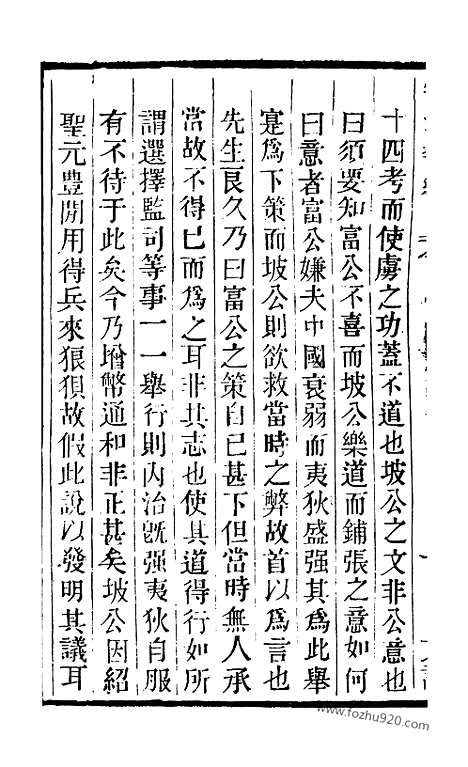 十四考而使虜之功蓋不道也坡公之文非公意也
曰須要知富公不喜而坡公樂道而鋪張之意如何
曰意者富公嫌夫中國衰弱而夷狄盛强其爲此舉
寔爲下策而坡公則欲救當時之弊故首以爲言也
先生良久乃曰富公之策自已甚下但當時無人承
當故不得已而爲之耳非其志也使其道得行如所
謂選擇監司等事一一舉行則內治旣强夷狄自服
有不待于此矣今乃增幣通和非正甚矣坡公因紹
聖元豊開用得兵來狠狽故假此說以發明其議耳
www.fozhu920.com